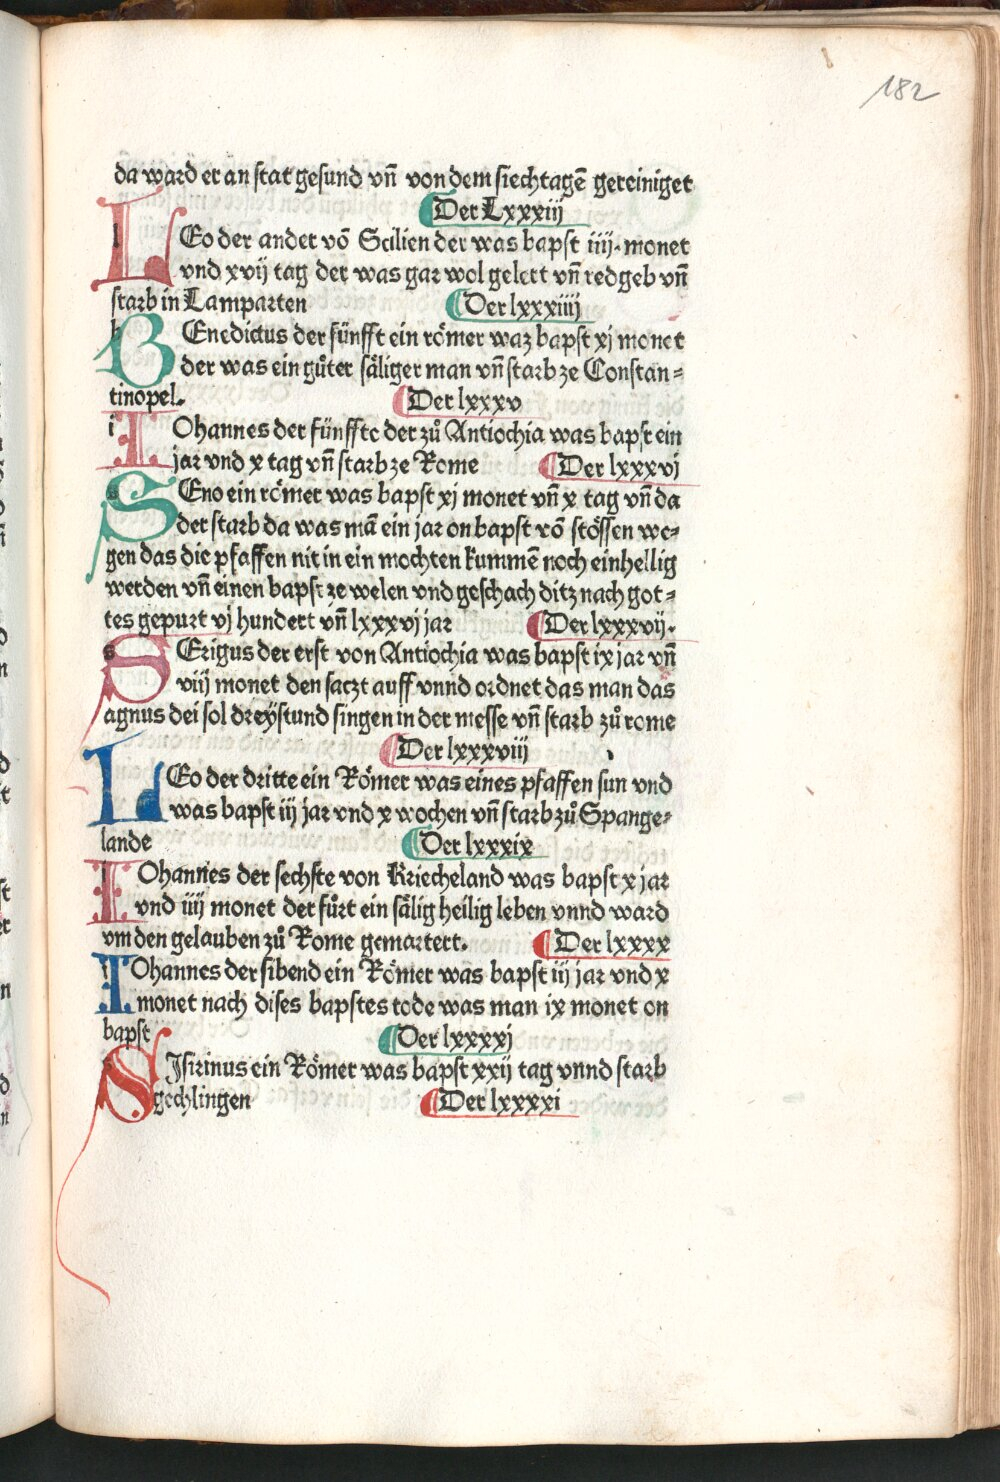 182
da ward er an stat gesund vñ von dem siechtagē gereiniget
Der Lxxxiij
LEo der ander vō Scilien der was bapst iiij. monet
vnd xvij tag der was gar wol gelert vñ redgeb vñ
starb in Lamparten Der lxxxiiij
BEnedictus der fünfft ein römer waz bapst xj monet
der was ein gůter säliger man vñ starb ze Constan=
tinopel. Der lxxxv
IOhannes der fünffte der zů Antiochia was bapst ein
jar vnd x tag vñ starb ze Rome Der lxxxvj
SEno ein römer was bapst xj monet vñ x tag vñ da
der starb da was mā ein jar on bapst vō stössen we=
gen das die pfaffen nit in ein mochten kummē noch einhellig
werden vñ einen bapst ze welen vnd geschach ditz nach got=
tes gepurt vj hundert vñ lxxxvj jar Der lxxxvij.
SErigus der erst von Antiochia was bapst ix jar vñ
viij monet den saczt auff vnnd ordnet das man das
agnus dei sol dreÿstund singen in der messe vñ starb zů rome
Der lxxxviij
LEo der dritte ein Römer was eines pfaffen sun vnd
was bapst iij jar vnd x wochen vñ starb zů Spange=
lande Der lxxxix
IOhannes der sechste von Kriecheland was bapst x jar
vnd iiij monet der fůrt ein sälig heilig leben vnnd ward
vm den gelauben zů Rome gemartert. Der lxxxx
IOhannes der sibend ein Römer was bapst iij jar vnd x
monet nach dises bapstes tode was man ix monet on
bapst Der lxxxxj
SJsirinus ein Römer was bapst xxij tag vnnd starb
gechlingen Der lxxxxi